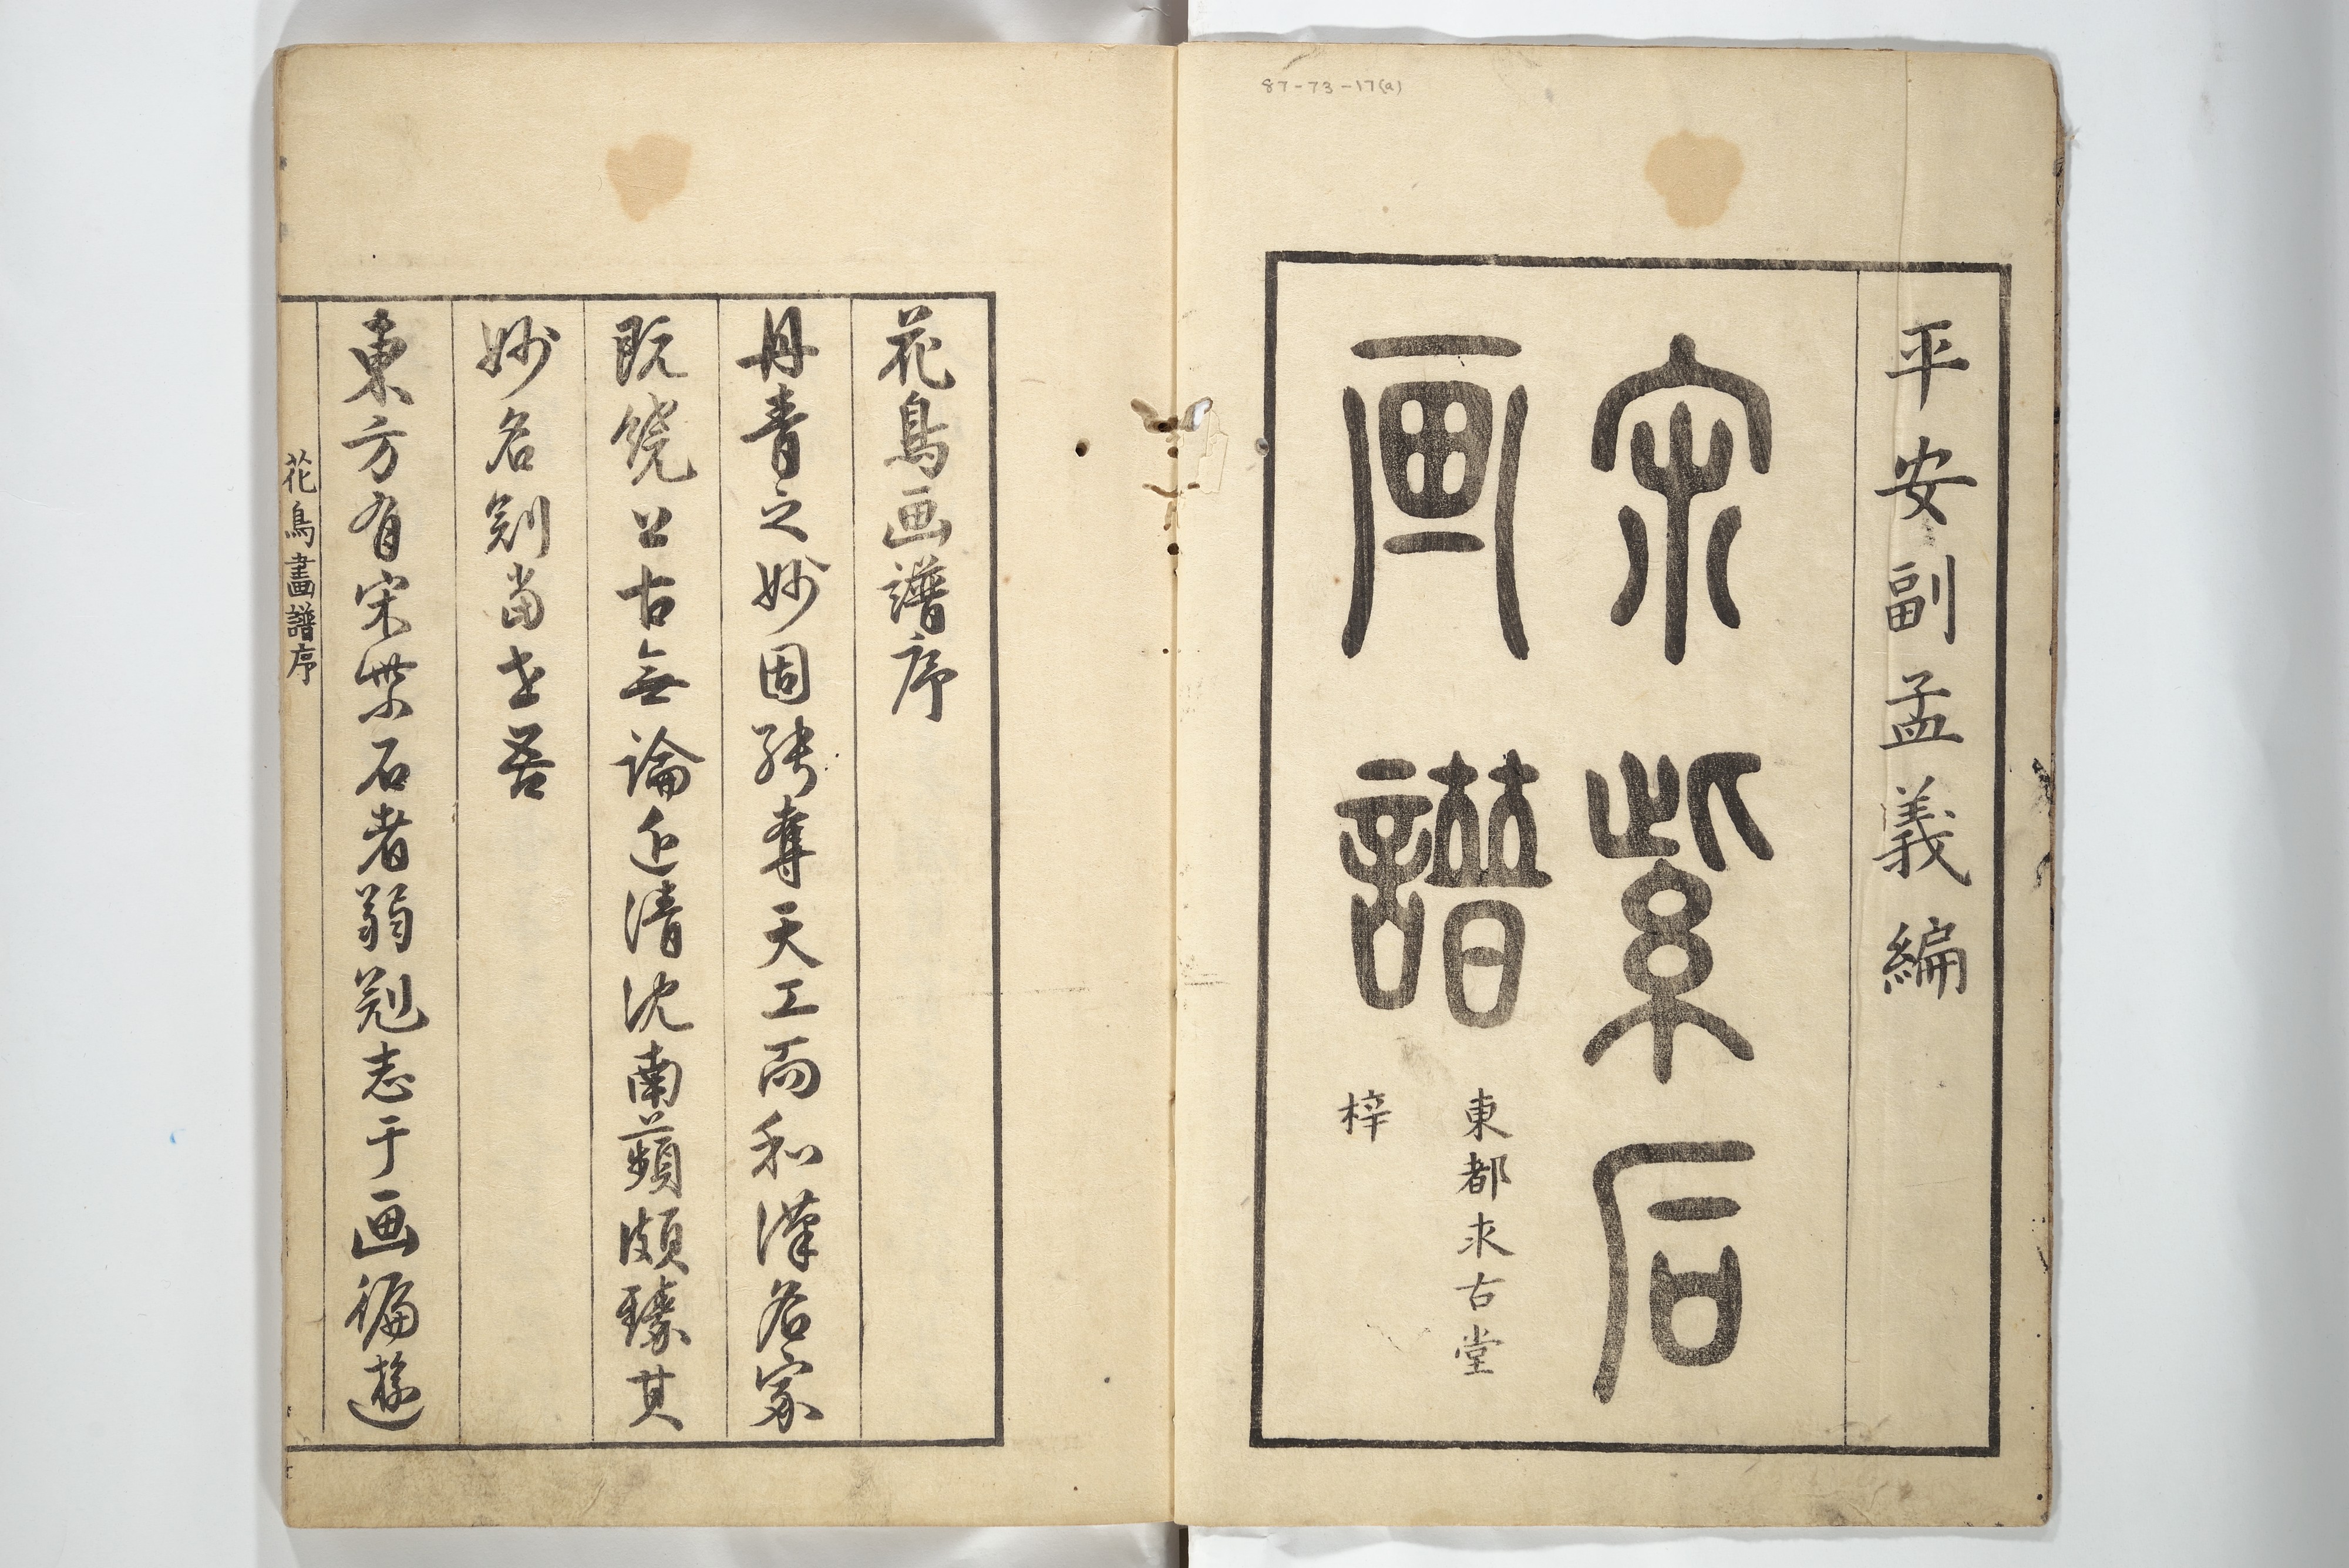 87-73-17(a)
平安副孟義編
宋紫石
画譜
東都求古堂
梓
花鳥画譜序
丹青之妙固能奪天工而和漢名家
既饒上古無論近清沈南蘋頗臻其
妙名剏当世吾
東方有宋紫石者翁剋志于画徧遊
花鳥畫譜序